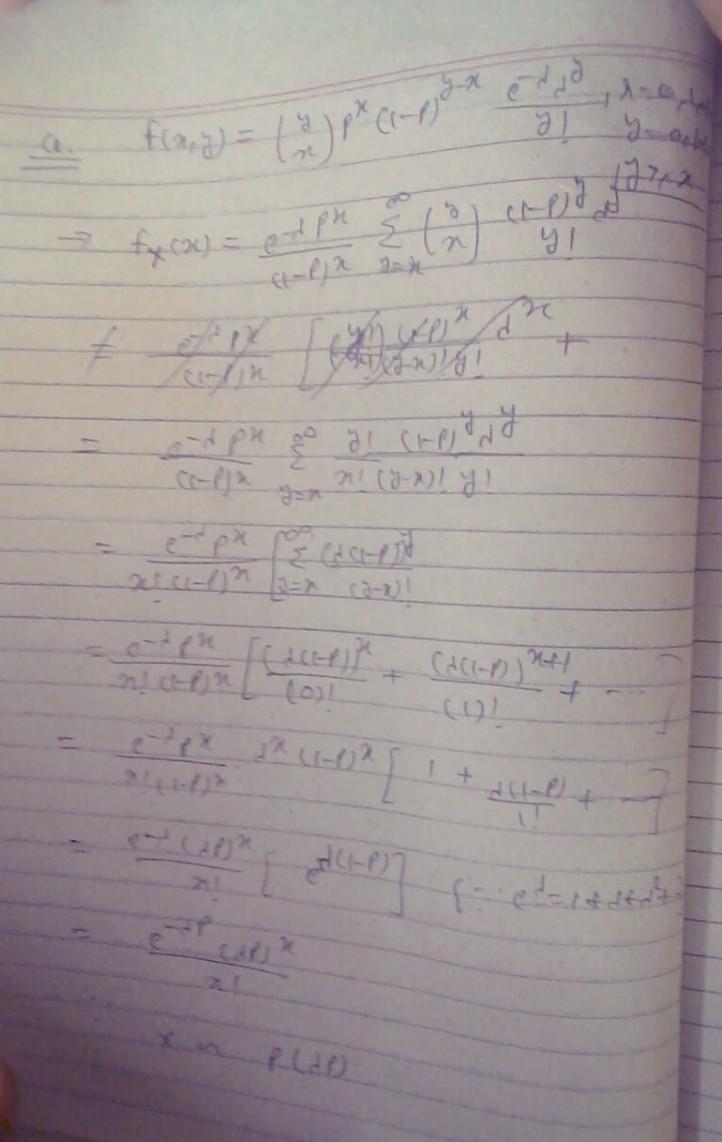 a. f(x,y) = (y x) p^x (1-p)^{y-x} e^{-λ} λ^y / y! , x=0,1, y=0, y≥x
→ f_X(x) = e^{-λ} p^x / (1-p)^x Σ_{y=x}^{∞} (y x) (1-p)^y / y! λ^y
= e^{-λ} p^x / (1-p)^x Σ_{y=x}^{∞} y! (1-p)^y λ^y / x! (y-x)! y!
= e^{-λ} p^x / x! (1-p)^x [ Σ_{y=x}^{∞} (λ(1-p))^y / (y-x)!
= e^{-λ} p^x / x! (1-p)^x [ (λ(1-p))^x / (0)! + (λ(1-p))^{x+1} / (1)! + ---- ]
= e^{-λ} p^x / x! (1-p)^x λ^x (1-p)^x [ 1 + λ(1-p) / 1! + --- ]
= e^{-λ} (λp)^x / x! [ e^{λ(1-p)} ] { ∵ e^λ = 1+λ+λ^2+
= e^{-λp} (λp)^x / x!
x ~ P(λp)